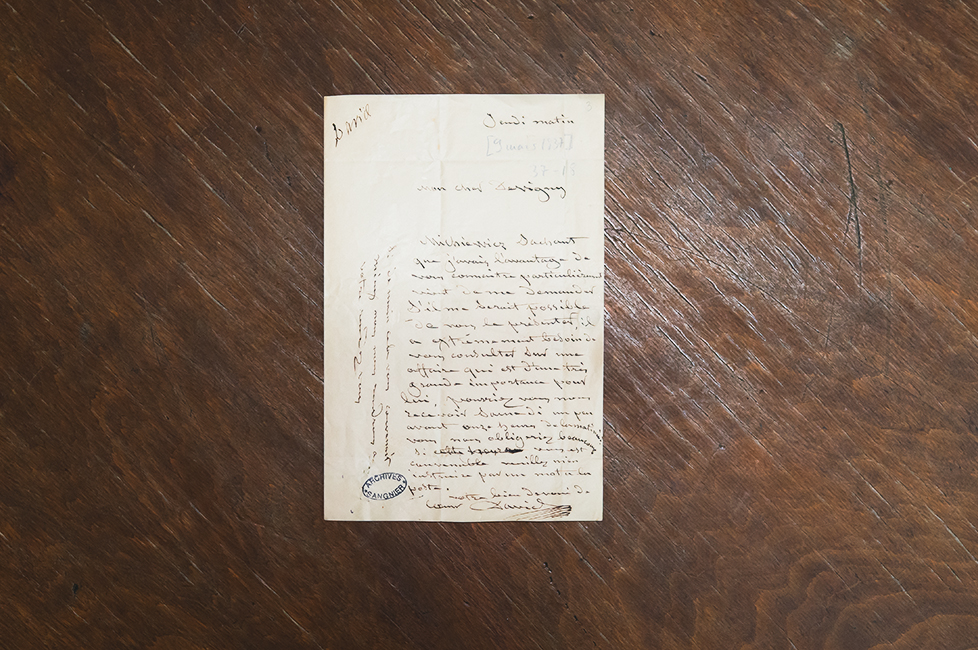 David
Jeudi matin
[9 mars 1837]
mon cher Savigny
Mickiewicz Sachant
que j'avais l'avantage de
vous connaitre particulièrement
vient de me demander
S'il me serait possible
de vous le présenter, il
a extrêmement besoin de
vous consulter sur une
affaire qui est d'une très
grande importance pour
lui, pourriez vous nous
recevoir Samedi un peu
avant onze heures du matin
vous nous obligeriez beaucoup
Si vous est
convenable veuillez m'en
instruire par un mot de la
poste.
votre bien dévoué de
cœur David
ARCHIVES
SANGNIER